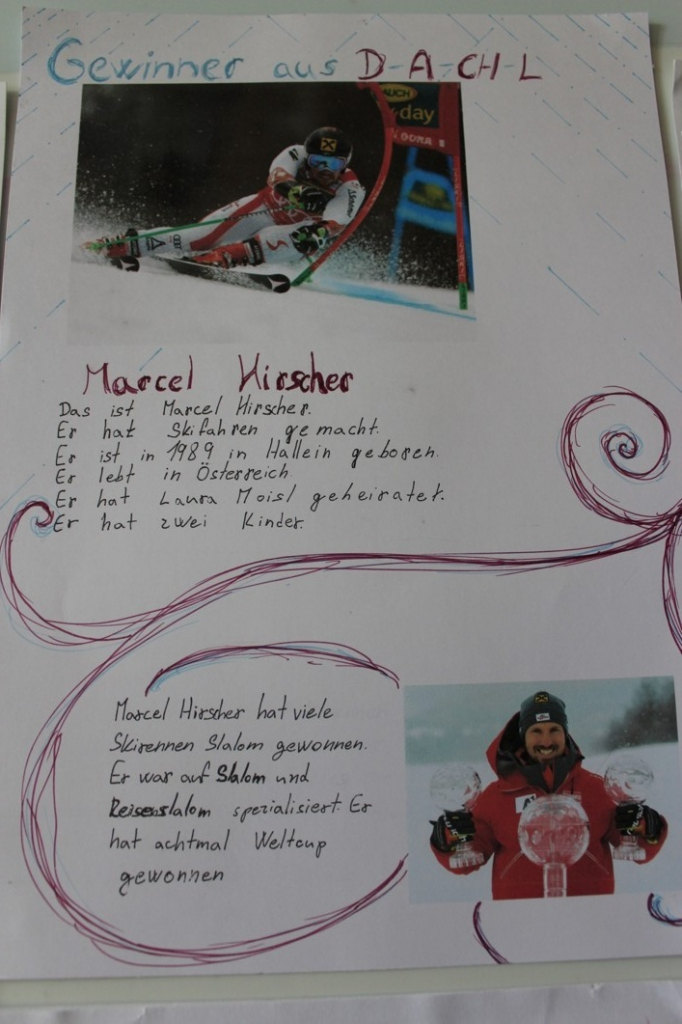 Gewinner aus D-A-CH-L
AUCH
day
Marcel Hirscher
Das ist Marcel Hirscher.
Er hat Skifahren gemacht.
Er ist in 1989 in Hallein geboren.
Er lebt in Österreich
Er hat Laura Moisl geheiratet.
Er hat zwei Kinder.
Marcel Hirscher hat viele
Skirennen Slalom gewonnen.
Er war auf Slalom und
Reisenslalom spezialisiert. Er
hat achtmal Weltcup
gewonnen